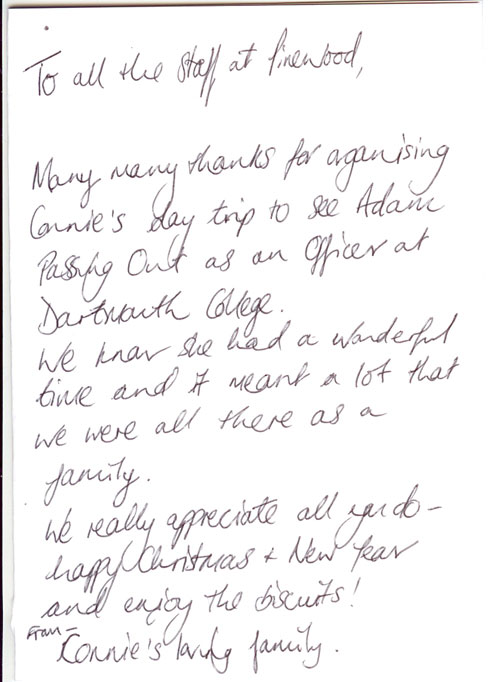 To all the staff at Pinewood,
Many many thanks for organising
Connie's day trip to see Adam
Passing Out as an Officer at
Dartmouth College.
We know she had a wonderful
time and it meant a lot that
we were all there as a
family.
We really appreciate all you do -
happy Christmas + New Year
and enjoy the biscuits!
From -
Connie's loving family.